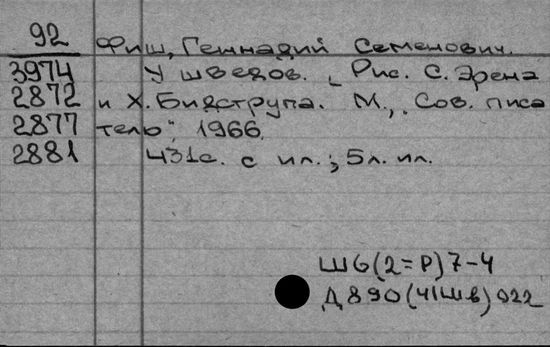 92
Фиш, Геннадий Семенович.
3974 У шведов. Рис. С. Эрена
2872 и Х. Бидструпа. М., „Сов. писа
2877 тель", 1966.
2881 431с. с ил.; 5л. ил.
Ш6(2=Р)7-4
Д890(41Шв)022